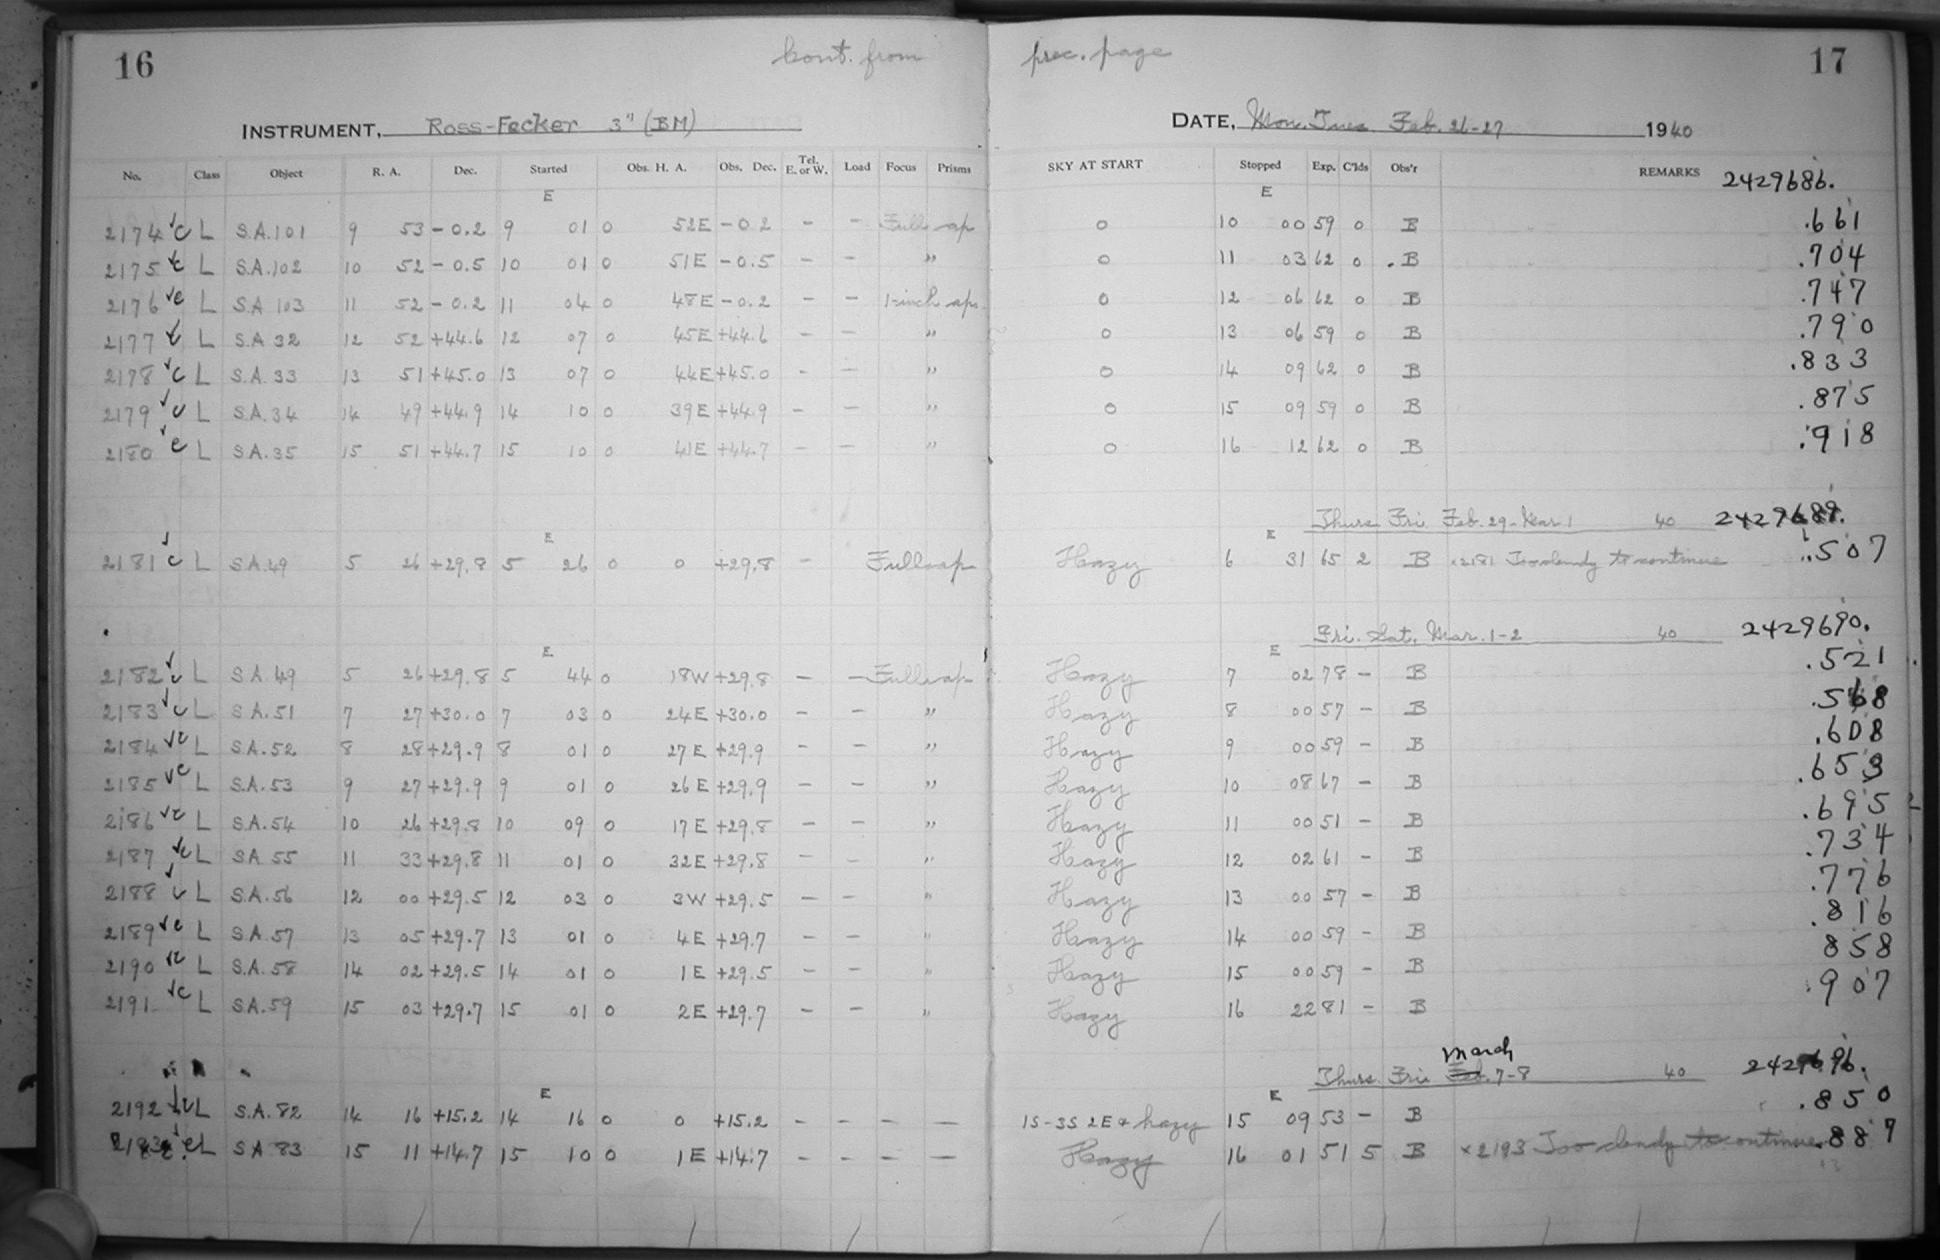 16 Cont. from prec. page 17
INSTRUMENT, Ross-Fecker 3" (BM) DATE, Mon. Tues. Feb. 26-27 1940
No. Class Object R. A. Dec. Started Obs. H. A. Obs. Dec. Tel. E. or W. Load Focus Prisms SKY AT START Stopped Exp. C'lds Obs'r REMARKS 2429686.
E E
2174 c L S.A.101 9 53 -0.2 9 01 0 52E -0.2 - - Full ap 0 10 00 59 0 B .661
2175 c L S.A.102 10 52 -0.5 10 01 0 51E -0.5 - - " 0 11 03 62 0 .B .704
2176 c L S.A 103 11 52 -0.2 11 04 0 48E -0.2 - - 1-inch ap. 0 12 06 62 0 B .747
2177 c L S.A 32 12 52 +44.6 12 07 0 45E +44.6 - - " 0 13 06 59 0 B .790
2178 c L S.A. 33 13 51 +45.0 13 07 0 44E +45.0 - - " 0 14 09 62 0 B .833
2179 c L S.A. 34 14 49 +44.9 14 10 0 39E +44.9 - - " 0 15 09 59 0 B .875
2180 c L S.A. 35 15 51 +44.7 15 10 0 41E +44.7 - " 0 16 12 62 0 B .918
Thurs. Fri. Feb. 29-Mar. 1 40 2429689.
E E
2181 c L SA.49 5 26 +29.8 5 26 0 0 +29.8 - Full ap Hazy 6 31 65 2 B x2181 Too cloudy to continue .507
Fri. Sat. Mar. 1-2 40 2429690.
E E
2182 c L S A.49 5 26 +29.8 5 44 0 18W +29.8 - - Full ap Hazy 7 02 78 - B .521
2183 c L S A.51 7 27 +30.0 7 03 0 24E +30.0 - - " Hazy 8 00 57 - B .568
2184 c L S.A.52 8 28 +29.9 8 01 0 27E +29.9 - - " Hazy 9 00 59 - B .608
2185 c L S.A.53 9 27 +29.9 9 01 0 26E +29.9 - - " Hazy 10 08 67 - B .653
2186 c L S.A.54 10 26 +29.8 10 09 0 17E +29.8 - - " Hazy 11 00 51 - B .695
2187 c L S.A 55 11 33 +29.8 11 01 0 32E +29.8 - - " Hazy 12 02 61 - B .734
2188 c L S.A.56 12 00 +29.5 12 03 0 3W +29.5 - - " Hazy 13 00 57 - B .776
2189 c L S.A.57 13 05 +29.7 13 01 0 4E +29.7 - - " Hazy 14 00 59 - B .816
2190 c L S.A.58 14 02 +29.5 14 01 0 1E +29.5 - - " Hazy 15 00 59 - B 858
2191 c L S.A.59 15 03 +29.7 15 01 0 2E +29.7 - - " Hazy 16 22 81 - B .907
March
Thurs. Fri. Feb. 7-8 40 2429696.
E E
2192 c L S.A.82 14 16 +15.2 14 16 0 0 +15.2 - - - - 1S-3S 2E & hazy 15 09 53 - B .850
c L SA 83 15 11 +14.7 15 10 0 1E +14.7 - - - - Hazy 16 01 51 5 B x2193 Too cloudy to continue .887